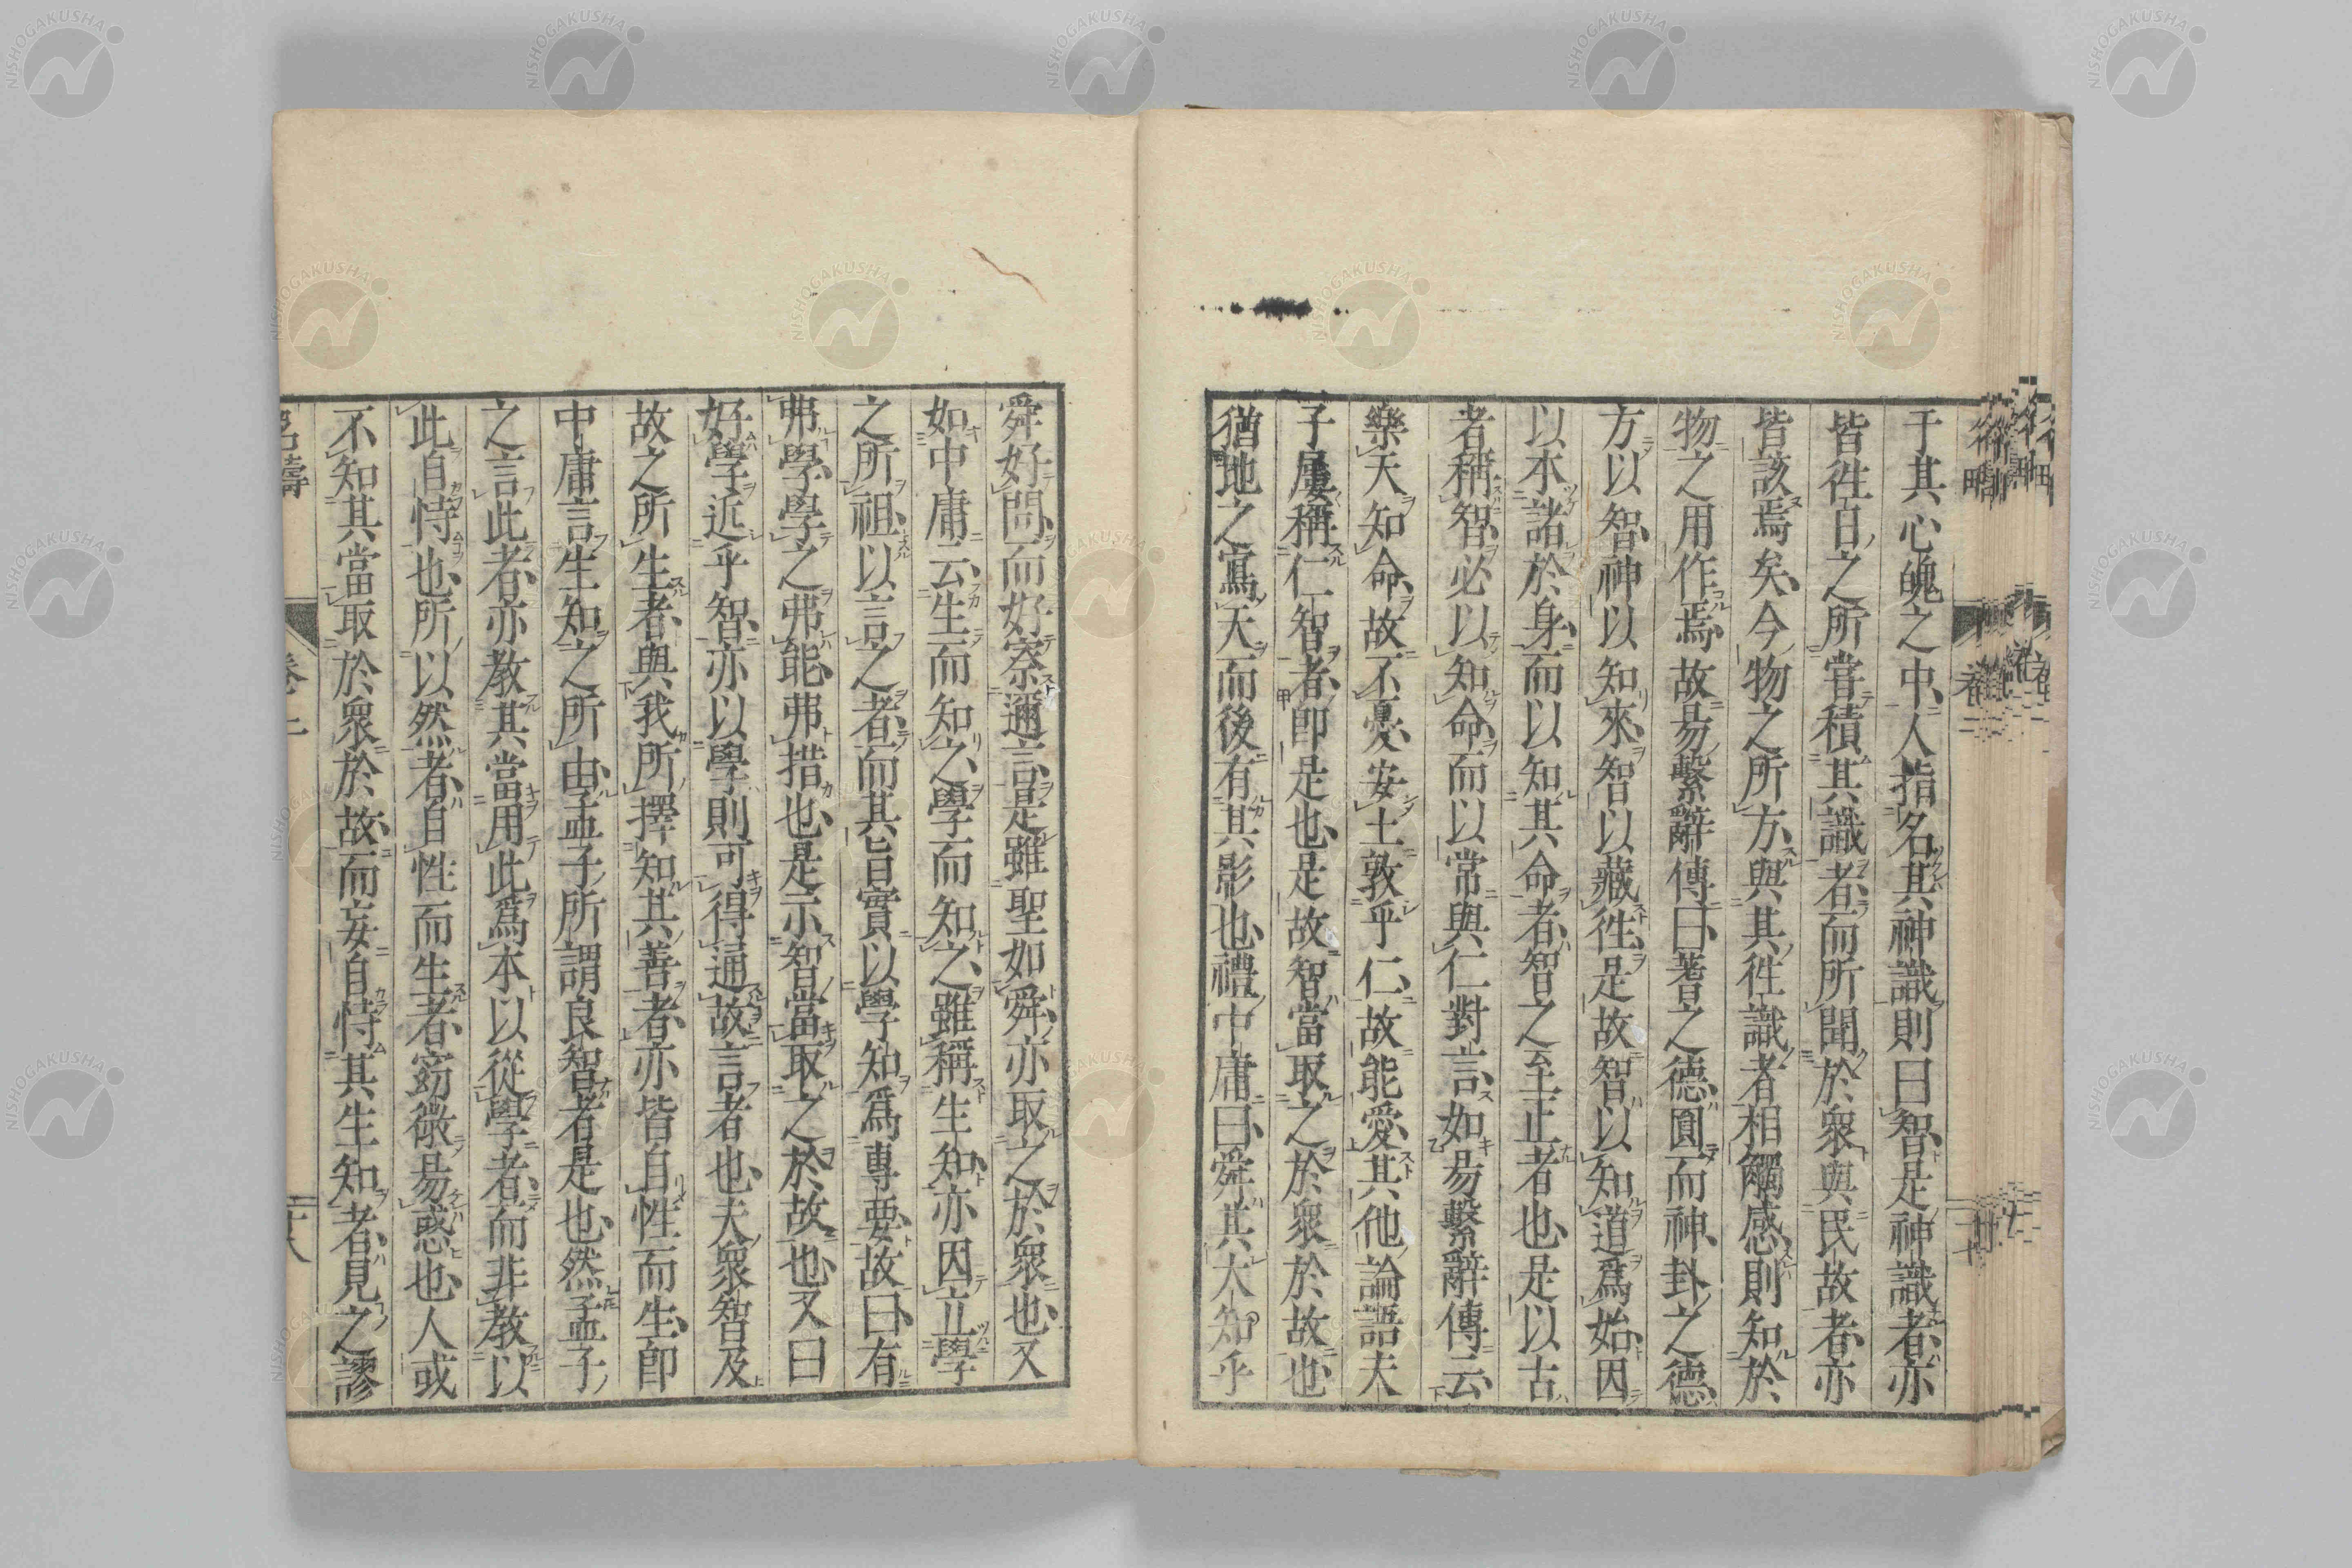 于其心魄之中人指名其神識則曰智是神識者亦
皆徃日之所嘗積其識者而所聞於衆與民故者亦
皆該焉矣今物之所方與其徃識者相觸感則知於
物之用作焉故易繫辭傳曰蓍之德圓而神卦之德
方以智神以知來智以藏徃是故智以知道爲始因
以本諸於身而以知其命者智之至止者也是以古
者稱智必以知命而以常與仁對言如易繫辭傳云
樂天知命故不憂安土敦乎仁故能愛其他論語夫
子屢稱仁智者即是也是故智當取之於衆於故也
猶地之寫天而後有其影也禮中庸曰舜其大知乎
舜好問而好察邇言是雖聖如舜亦取之於衆也又
如中庸云生而知之學而知之雖稱生知亦因立學
之所祖以言之者而其旨實以學知爲專要故曰有
弗學學之弗能弗措也是示智當取之於故也又曰
好學近乎智亦以學則可得通故言者也夫衆智及
故之所生者與我所擇知其善者亦皆自性而生即
中庸言生知之所由孟子所謂良智者是也然孟子
之言此者亦教其當用此爲本以從學者而非教以
此自恃也所以然者自性而生者窈微易惑也人或
不知其當取於衆於故而妄自恃其生知者見之謬
名疇
卷上
NISHOGAKUSHA